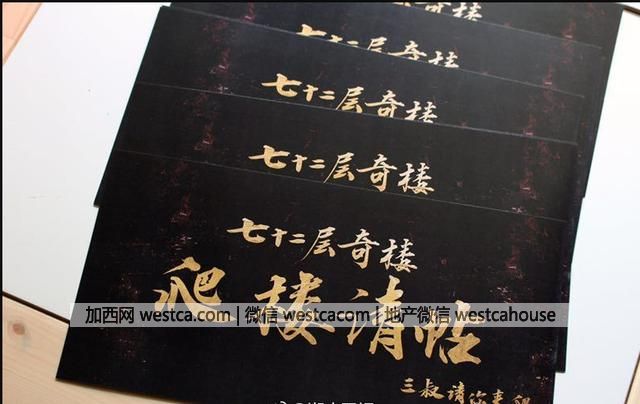 七十二层奇楼
七十二层奇楼
七十二层奇楼
七十二层奇楼
爬楼请帖
加西网 westca.com | 微信 westcacom | 地产微信 westcahouse
三叔请你来